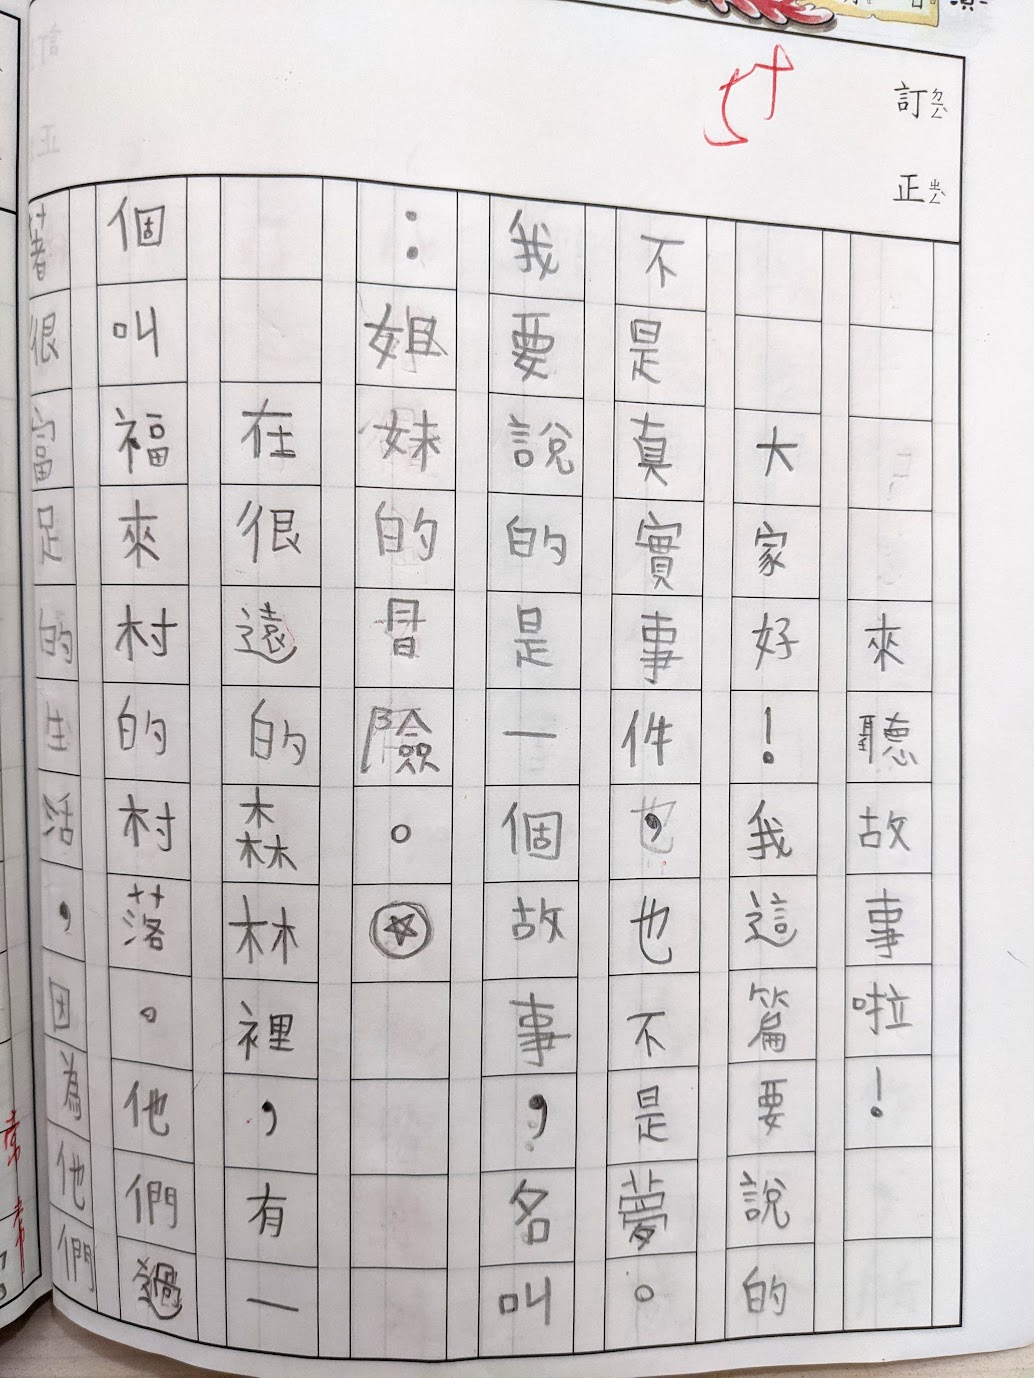 訂正
來聽故事啦！
大家好！我這篇要說的
不是真實事件，也不是夢。
我要說的是一個故事，名叫
：姐妹的冒險。
在很遠的森林裡，有一
個叫福來村的村落。他們過
著很富足的生活，因為他們